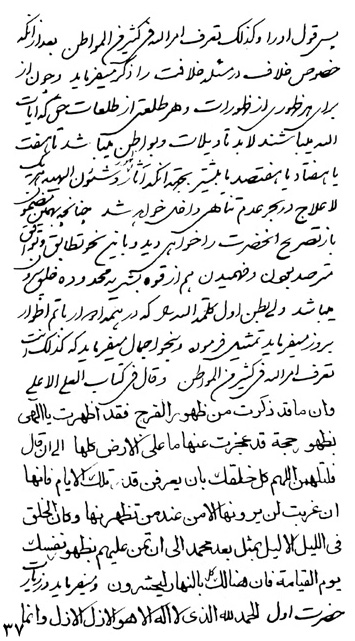 پس قول او را و کذلک تعرف امر الله فی کثیر من المواطن بعد از آنکه
خصوص خلاف در مسئله خلافت را ذکر میفرماید و چون از
برای هر ظهوری از ظهورات و هر طلعتی از طلعات حق که آیات
الله میباشند لابد تأویلات و بواطن میباشد تا هفت
یا هفتاد یا هفتصد یا بیشتر بجهة آنکه آثار و شئون الهیه
لاعلاج در بحر عدم تناهی داخل خواهد شد چنانچه بهمین مضمون
باز تصریح آنحضرت را خواهی دید و باین نحو تطابق و توافق
مترصد بودن و فهمیدن هم از قوه بشریه محدوده خلق بیرون
میباشد ولی بطن اول کلمة الله را که در همه ادوار با تم اطوار
بروز میفرماید تمثیل فرموده و بنحو اجمال میفرماید که کذلک انت
تعرف امر الله فی کثیر من المواطن و قال فی کتاب العلاء الاعلی
وان ما قد ذکرت من ظهور الفرج فقد اظهرت یا الهی
بظهور حجة قد عجزت عنها ما علی الارض کلها الی ان قال
فلتلهمن اللهم کل خلقک بان یعرفن قدر تلک الایام فانها
ان غربت لن یرونها الا من عند من تظهر بها و کان الخلق
فی اللیل الالیل بمثل بعد محمد الی ان تمن علیهم بظهور نفسک
یوم القیامة فان هنالک کل بالنهار لیحشرون و میفرماید در زیارت
حضرت اول الحمد لله الذی لا اله الا هو الازل الازل و انما
۳۷